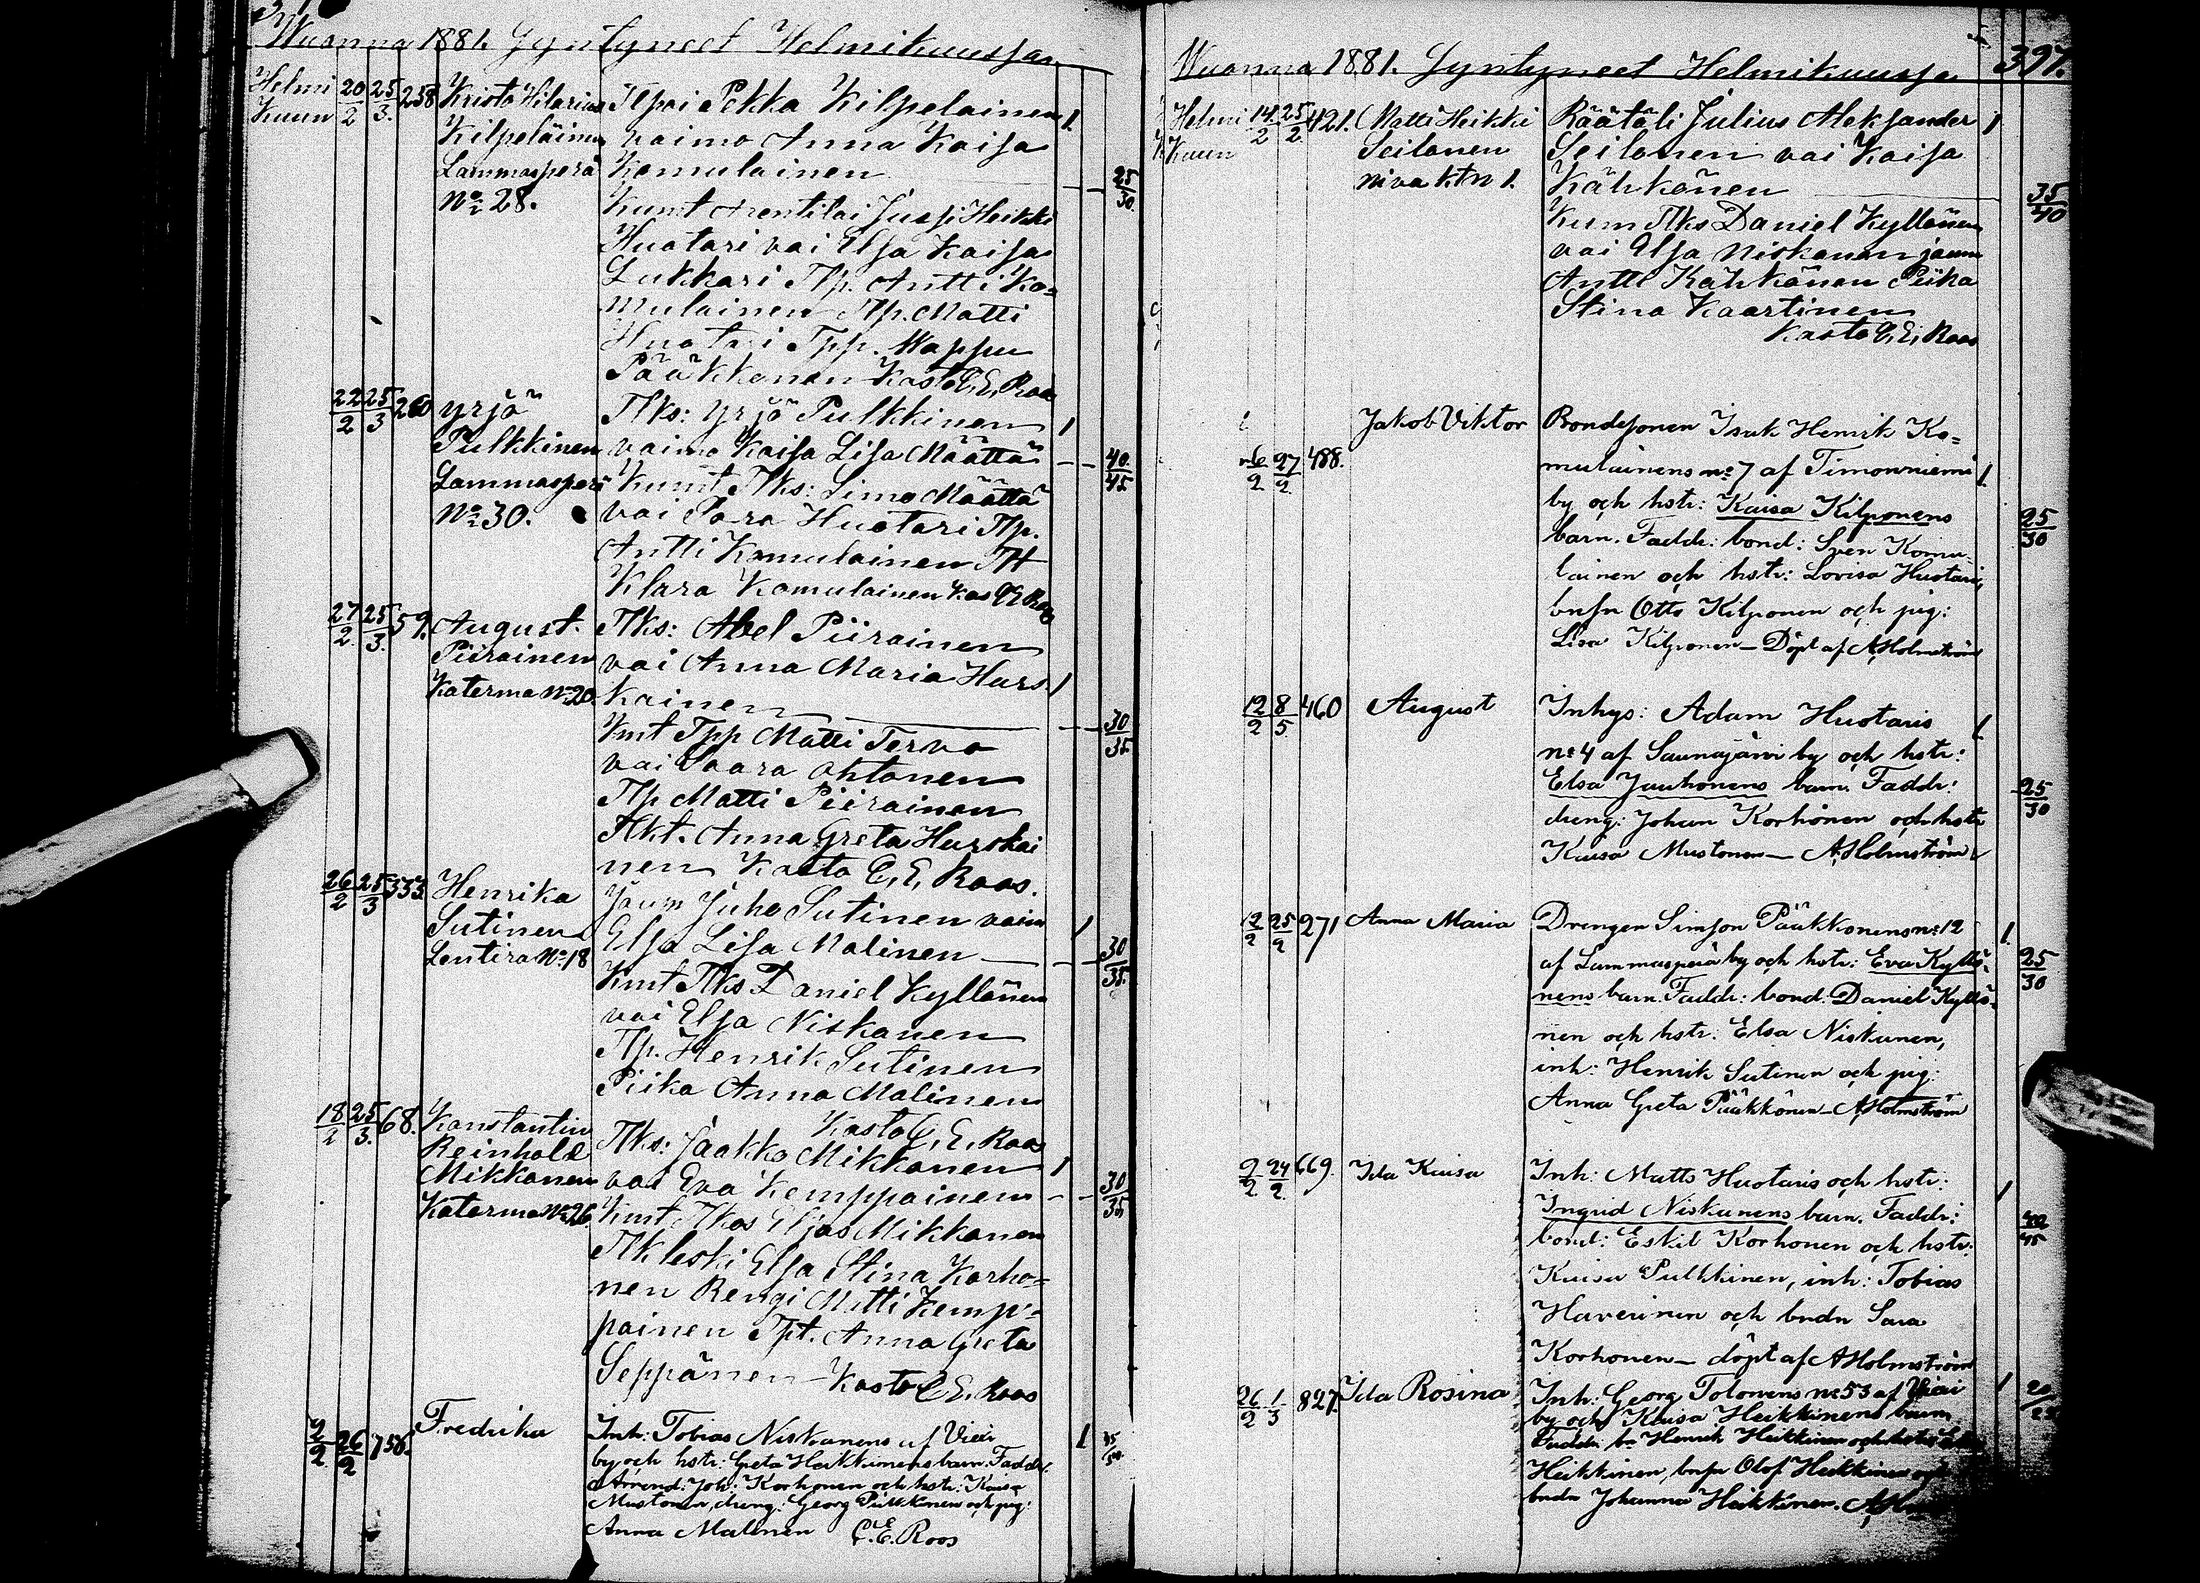 Wuonna 1881. Syntyneet Helmikuussa
Helmi 20/2 25/3. 258 Kristo Hilarius Ilpoi Pekka Kilpeläinen 1.
Kuun Kilpeläinen vaimo Anna Kaisa
Lammasperä Komulainen 25/30.
No 28. Kumt Arentilai Jussi Heikki
Huotari vai Elsa Kaisa
Lukkari Ilp. Antti Ko=
mulainen Ilp. Matti
Huotari Tpp. Wappu
Pääkkönen Kasto C. E. Roos
22/2 25/3 260 Yrjö Tlks: Yrjö Pulkkinen 1
Pulkkinen vaimo Kaisa Lisa Määttä 40/45
Lammasperä Kumt Tlks: Simo Määttä
No 30. vai Sara Huotari Tlp.
Antti Komulainen Tlt
Klara Komulainen Kas C E Roos
27/2 25/3. 59. August. Tlks: Abel Piirainen
Piirainen vai Anna Maria Hurs- 1
Katerma No 20. kainen 30/35.
Kmt Tpp Matti Tervo
vai Saara Ahtonen
Tlp Matti Piirainen
Tlkt. Anna Greta Hurskai
nen Kasto C. E. Roos.
26/2 25/3 333 Henrika Jaum Juho Sutinen vaim 1
Sutinen Elsa Lisa Malinen 30/35.
Lentira No 18 Kmt Tlks Daniel Kyllönen
vai Elsa Niskanen
Tlp. Henrik Sutinen
Piika Anna Malinen
Kasto C. E. Roos
18/2 25/3. 68. Konstantin Tlks: Jaakko Mikkonen 1
Reinhold vai Eva Kemppainen 30/35
Mikkonen Kmt Tlkos Eljas Mikkonen
Katerma No 26. Tlk leski Elsa Stina Korho=
nen Rengi Matti Kemp=
painen Tpt. Anna Greta
Seppänen Kasto C E. Roos
2/2 26/2 758. Fredrika Inh: Tobias Niskanens af Viiki 1
by och hstr: Greta Heikkinens barn. Faddr:
Arrend: Joh: Korhonen och hstr: Kaisa
Mustonen, dreng: Georg Piikkinen och pig:
Anna Malinen C. E. Roos
Wuonna 1881. Syntyneet Helmikuussa 397.
Helmi 14/2 25/2. 421. Matti Heikki Räätäli Julius Aleksander 1
Kuun Seilonen Seilonen vai Kaisa
Niva k.t.n 1. Kähkönen 35/40
Kum Tlks Daniel Kyllönen
vai Elsa Niskanen jaum
Antti Kähkönen Piika
Stina Kaartinen
Kasto C. E. Roos
6/2 27/2. 488. Jakob Viktor Bondesonen Isak Henrik Ko=
mulainens no 7 af Timoniemi 1.
by och hstr: Kaisa Kilponens 25/30
barn. Faddr: bond: Sven Komu-
lainen och hstr: Lovisa Huotari,
bnsn Otto Kilponen och pig:
Lisa Kilponen – Döpt af A Holmström
12/2 8/5. 460 August Inhys: Adam Huotaris 1
no 4 af Saunajärvi by och hstr:
Elsa Jauhonens barn. Faddr: 25/30
dreng: Johan Korhonen och hstr
Kaisa Mustonen – A. Holmström
12/2 25/2 271 Anna Maria Drengen Simson Pääkkönens no 12 1.
af Lammasperä by och hstr: Eva Kyllö- 25/30
nens barn. Faddr: bond. Daniel Kyllö-
nen och hstr: Elsa Niskanen,
inh: Henrik Sutinen och pig:
Anna Greta Pääkkönen – A Holmström
2/2 24/2. 669. Ida Kaisa Inh: Matts Huotaris och hstr: 1
Ingrid Niskanens barn. Faddr: 40/45
bond: Eskil Korhonen och hstr:
Kaisa Pulkkinen, inh: Tobias
Haverinen och bndr Sara
Korhonen – döpt af A Holmström
26/2 1/3 827. Ida Rosina Inh: Georg Tolonens no 53 af Viiki 1
by och Kaisa Heikkinens barn
Faddr. b: Henrik Heikkinen och hstr
Heikkinen, bnsn Olof Heikkinen och
bndr Johanna Heikkinen.